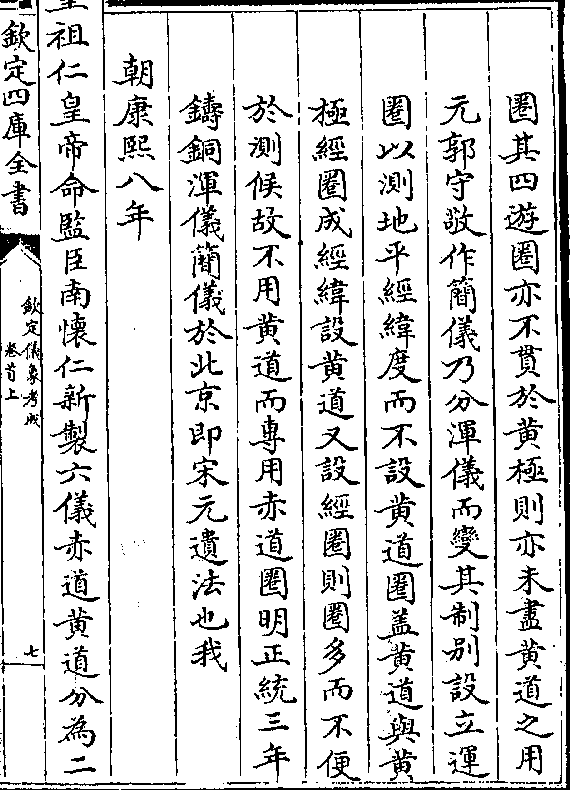 圈其四遊圈亦不貫於黄極則亦未盡黄道之用
元郭守敬作簡儀乃分渾儀而變其制別設立運
圈以測地平經緯度而不設黄道圈盖黄道與黄
極經圈成經緯設黄道又設經圈則圈多而不便
於測候故不用黄道而專用赤道圈明正統三年
鑄銅渾儀簡儀於北京即宋元遺法也我
朝康熙八年
皇祖仁皇帝命監臣南懷仁新製六儀赤道黄道分為二
欽定四庫全書
欽定儀象考成
卷首上
七